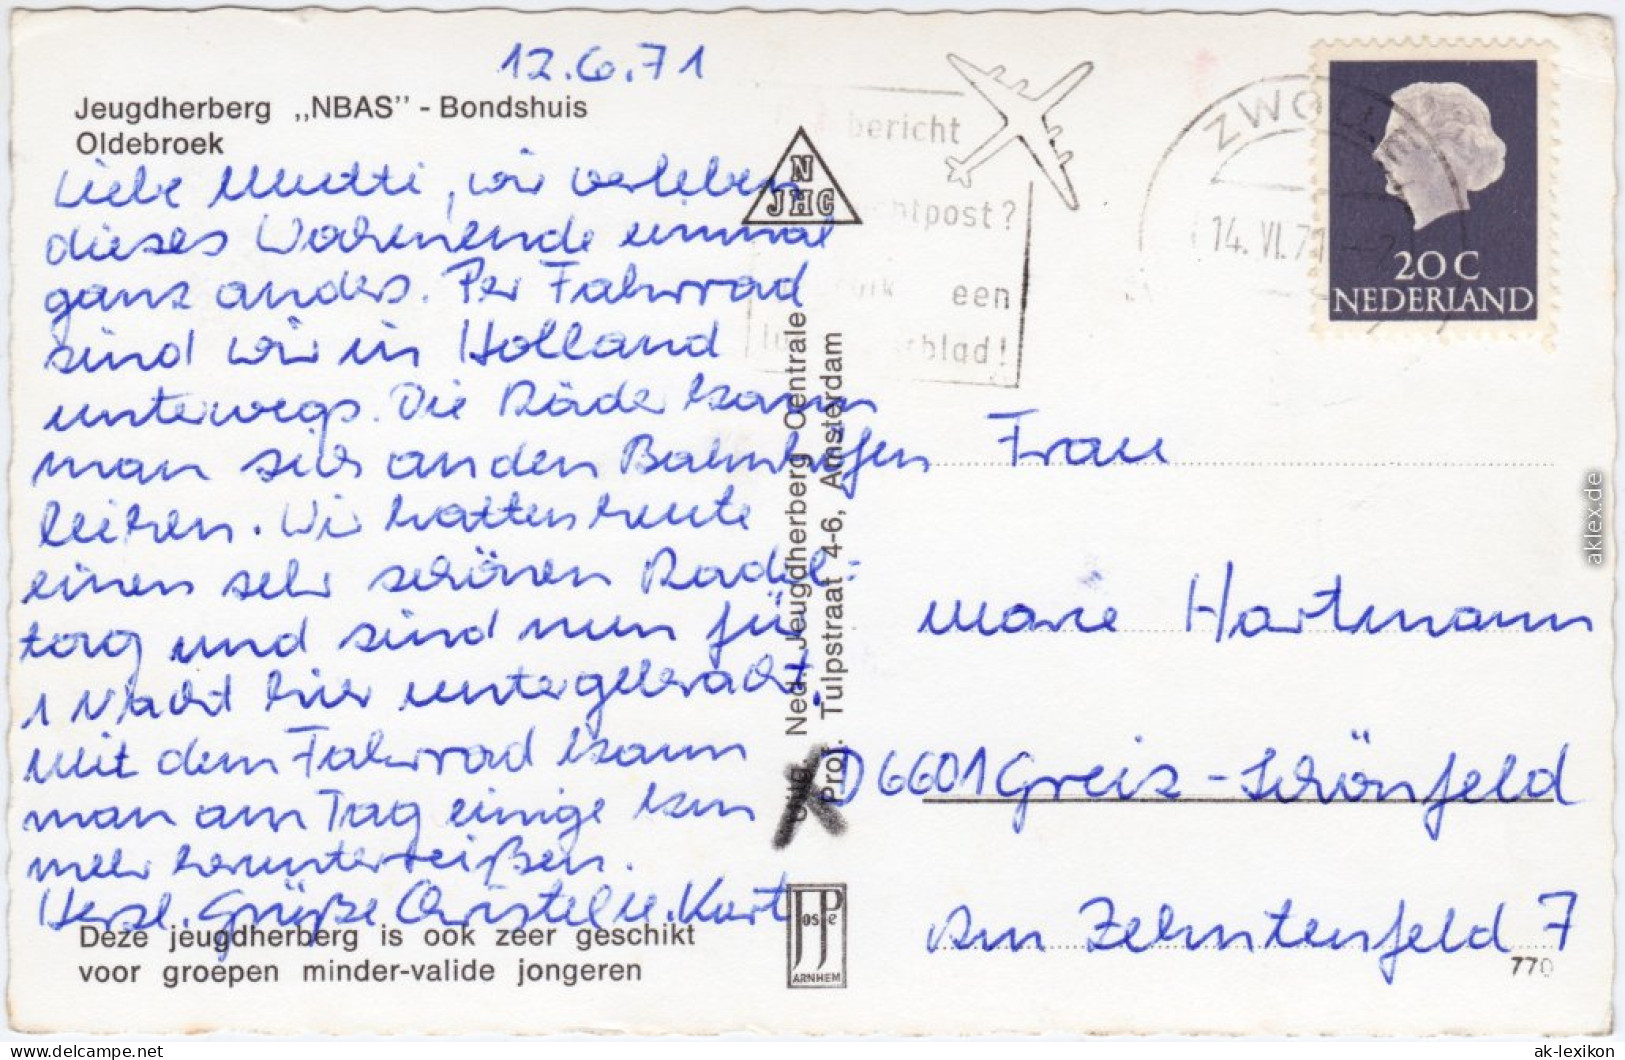 12.6.71
Jeugdherberg „NBAS" - Bondshuis
Oldebroek
Liebe Mutti, wir verleben
dieses Wochenende einmal
ganz anders. Per Fahrrad
sind wir in Holland
unterwegs. Die Räder kann
man sich an den Bahnhöfen
leihen. Wir hatten heute
einen sehr schönen Radel=
tag und sind nun für
1 Nacht hier untergebracht.
Mit dem Fahrrad kann
man am Tag einige km
mehr herunterreißen.
Herzl. Grüße Christel u. Kurt
Deze jeugdherberg is ook zeer geschikt
voor groepen minder-valide jongeren
N
JHC
Ned. Jeugdherberg Centrale
Prof. Tulpstraat 4-6, Amsterdam
JosPe
ARNHEM
bericht
luchtpost?
een
blad!
ZWOLLE
14. VI. 71
20 C
NEDERLAND
Frau
Marie Hartmann
D 6601 Greiz-Schönfeld
Am Zehntenfeld 7
770
aklex.de
delcampe.net
ak-lexikon